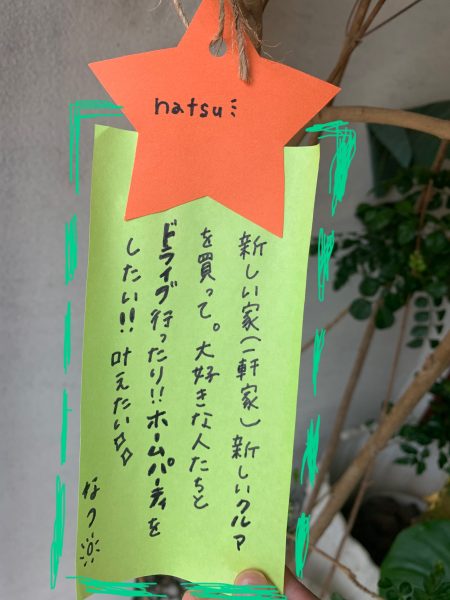 natsu
新しい家(一軒家)新しいクルマ
を買って。大好きな人たちと
ドライブ行ったり!!ホームパーティを
したい!!叶えたい
なつ